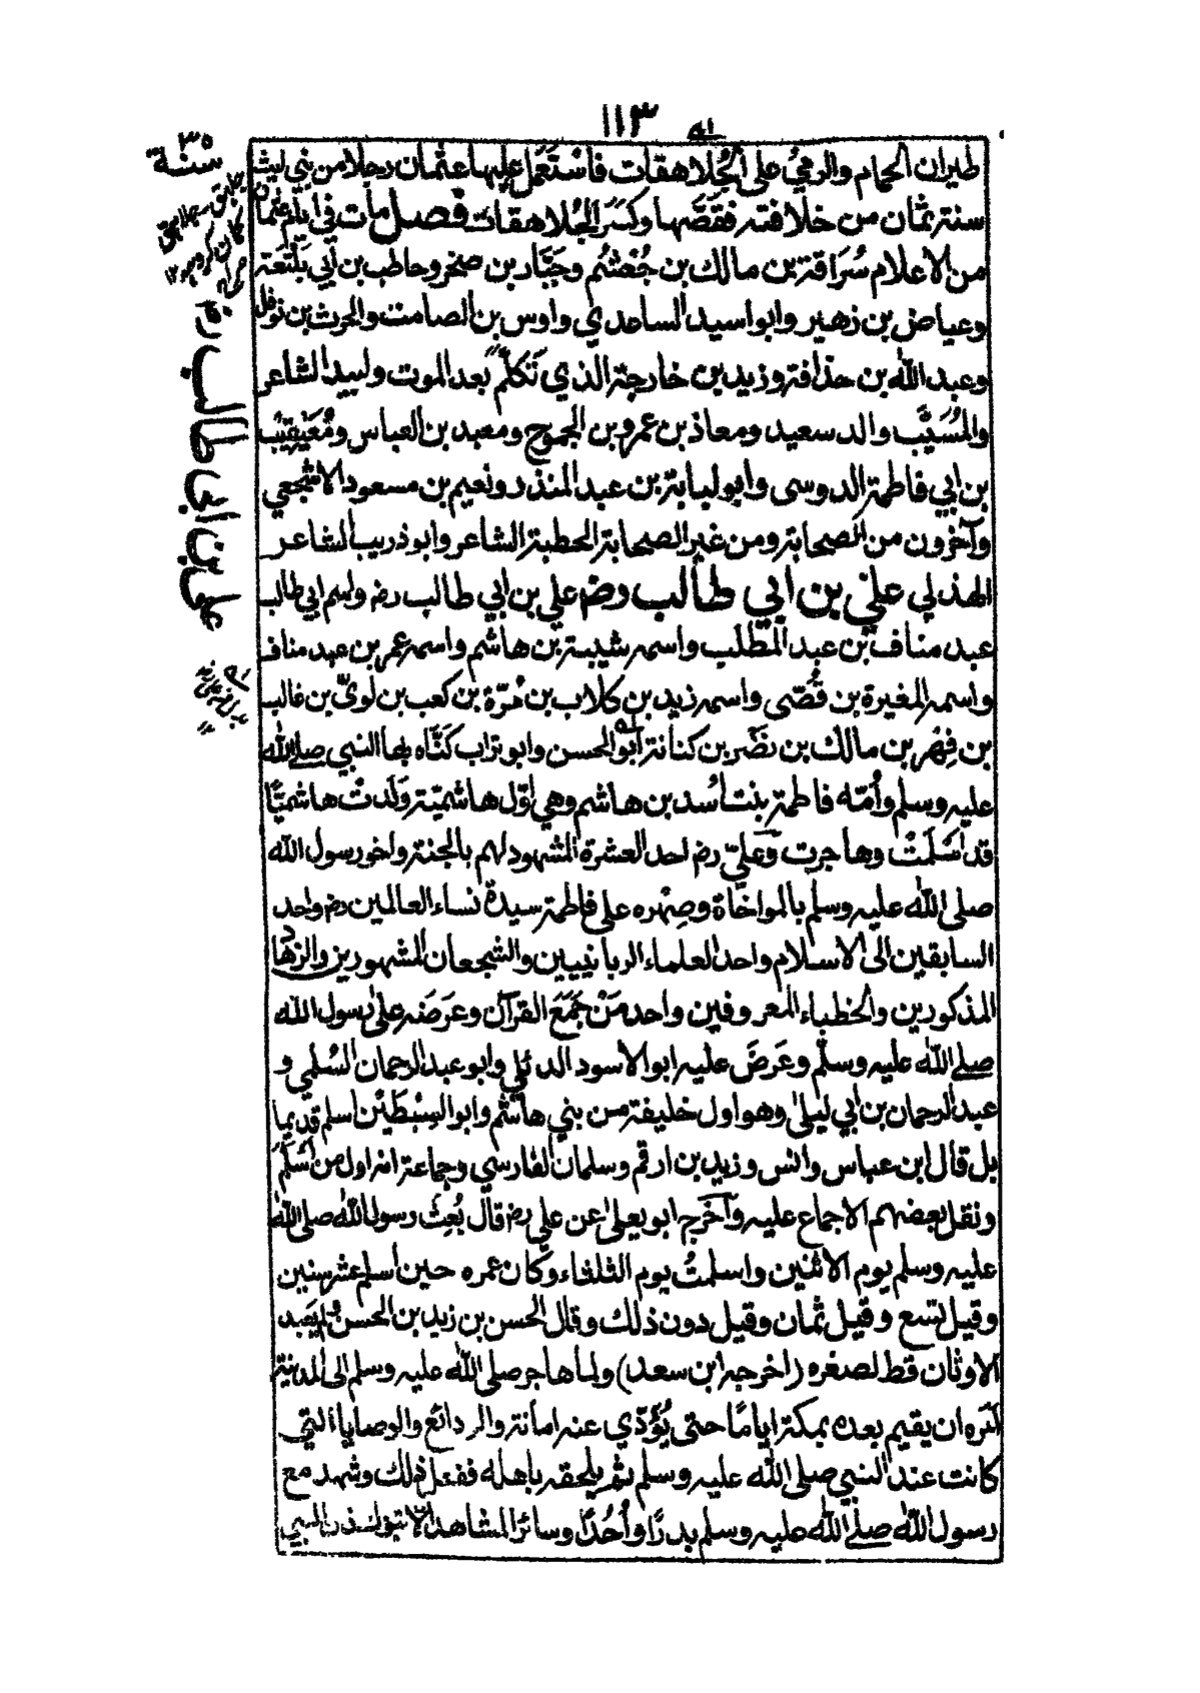 ١١٣
سنة ٣٥
طيران الحمام والرمي على الجُلاهقات فاستَعمل عليها عثمان رجلا من بني ليث
سنة ثمان من خلافته فقصّها وكسَر الجُلاهقات فصل مات في ايام عثمان
من الاعلام سُراقة بن مالك بن جُعْشُم وجبّار بن صخر وحاطب بن أبي بَلْتَعَة
وعياض بن زهير وابو اسيد الساعدي واوس بن الصامت والحرث بن نوفل
وعبد الله بن حذافة وزيد بن خارجة الذي تَكلّم بعد الموت ولبيد الشاعر
والمُسيَّب والد سعيد ومعاذ بن عمرو بن الجموح ومعبد بن العباس ومُعَيْقِيْب
بن ابي فاطمة الدوسى وابو لبابة بن عبد المنذر ونعيم بن مسعود الاشجعي
وآخرون من الصحابة ومن غير الصحابة الحطيئة الشاعر وابو ذويب الشاعر
الهذلي علي بن ابي طالب رضـ علي بن ابي طالب رضـ واسم ابي طالب
عبد مناف بن عبد المطلب واسمه شيبة بن هاشم واسمه عمر بن عبد مناف
واسمه المغيرة بن قُصّى واسمه زيد بن كلاب بن مُرّة بن كعب بن لوىّ بن غالب
بن فِهْر بن مالك بن نضْر بن كنانة أبو الحسن وابو تراب كَنّاه بها النبي صلے الله
عليه وسلم وأمّه فاطمة بنت أسد بن هاشم وهي اوّل هاشميّة ولَدتْ هاشميًّا
قد اسْلَمَتْ وهاجرت وعليّ رضـ احد العشرة المشهود لهم بالجنة واخو رسول الله
صلى الله عليه وسلم بالمواخاة وصِهْره على فاطمة سيدة نساء العالمين رضـ واحد
السابقين الى الاسلام واحد العلماء الربانيين والشجعان المشهورين والزهاد
المذكورين والخطباء المعروفين واحد مَنْ جَمَعَ القرآن وعرَضَه على رسول الله
صلے الله عليه وسلّم وعَرضَ عليه ابو الاسود الدئلي وابو عبد الرحمان السُلمي و
عبد الرحمان بن ابي ليلى وهو اول خليفة من بني هاشم وابو السِبْطَيْن اسلم قديما
بل قال ابن عباس وانس وزيد بن ارقم وسلمان الفارسي وجماعة انه اول من اسْلَمَ
ونقل بعضهم الاجماع عليه وأخرج ابو يعلى عن علي رضـ قال بُعِثَ رسول الله صلى الله
عليه وسلم يوم الاثنين واسلمتُ يوم الثلثاء وكان عمره حين اسلم عشر سنين
وقيل تسع وقيل ثمان وقيل دون ذلك وقال الحسن بن زيد بن الحسن ولم يعبد
الاوثان قط لصغره (اخرجه ابن سعد) ولما هاجر صلى الله عليه وسلم الى المدينة
امره ان يقيم بعده بمكة ايامًا حتى يُؤدّي عنه امانة والودائع والوصايا التي
كانت عند النبي صلى الله عليه وسلم ثم يلحقه باهله ففعل ذلك وشهد مع
رسول الله صلے الله عليه وسلم بدرًا وأُحُدًا وسائر المشاهد الا تبوك فان النبي
علي بن ابى طالب رضـ